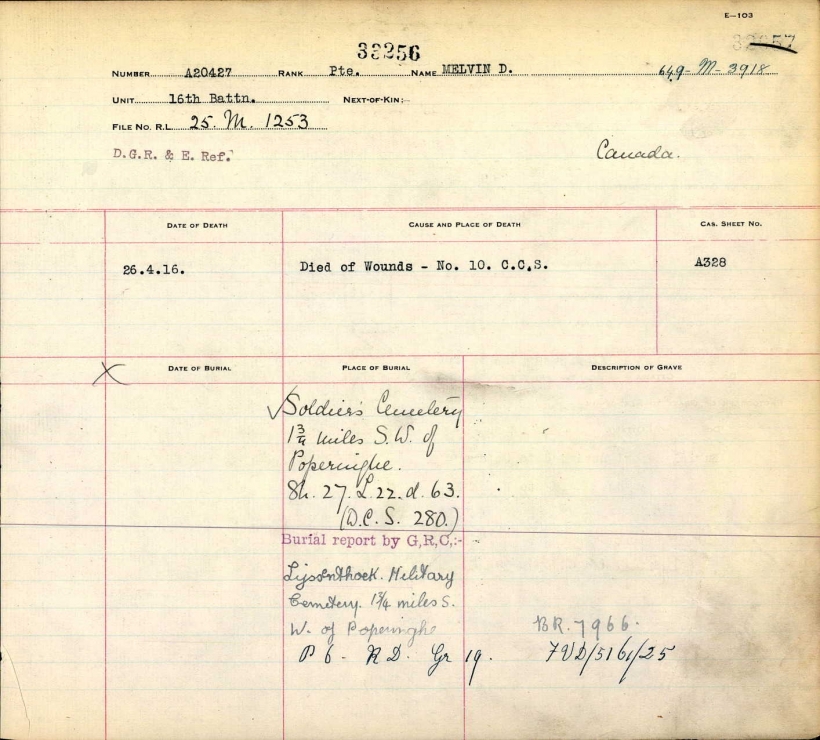 E—103
33256
NUMBER A20427 RANK Pte. NAME MELVIN D. 649-M-3918
UNIT 16th Battn. NEXT-OF-KIN:
FILE NO. R.L. 25. M. 1253
D.G.R. & E. Ref. Canada.
DATE OF DEATH CAUSE AND PLACE OF DEATH CAS. SHEET NO.
26.4.16. Died of Wounds - No. 10. C.C.S. A328
X DATE OF BURIAL PLACE OF BURIAL DESCRIPTION OF GRAVE
✓Soldiers Cemetery
1¾ miles S.W. of
Poperinghe.
Sh. 27. L.22.d.63.
(D.C.S. 280.)
Burial report by G,R,C,:-
Lijssenthoek. Military
Cemetery. 1¾ miles S.
W. of Poperinghe BR.7966.
P 6 - R D. Gr 19. 7VD/5161/25